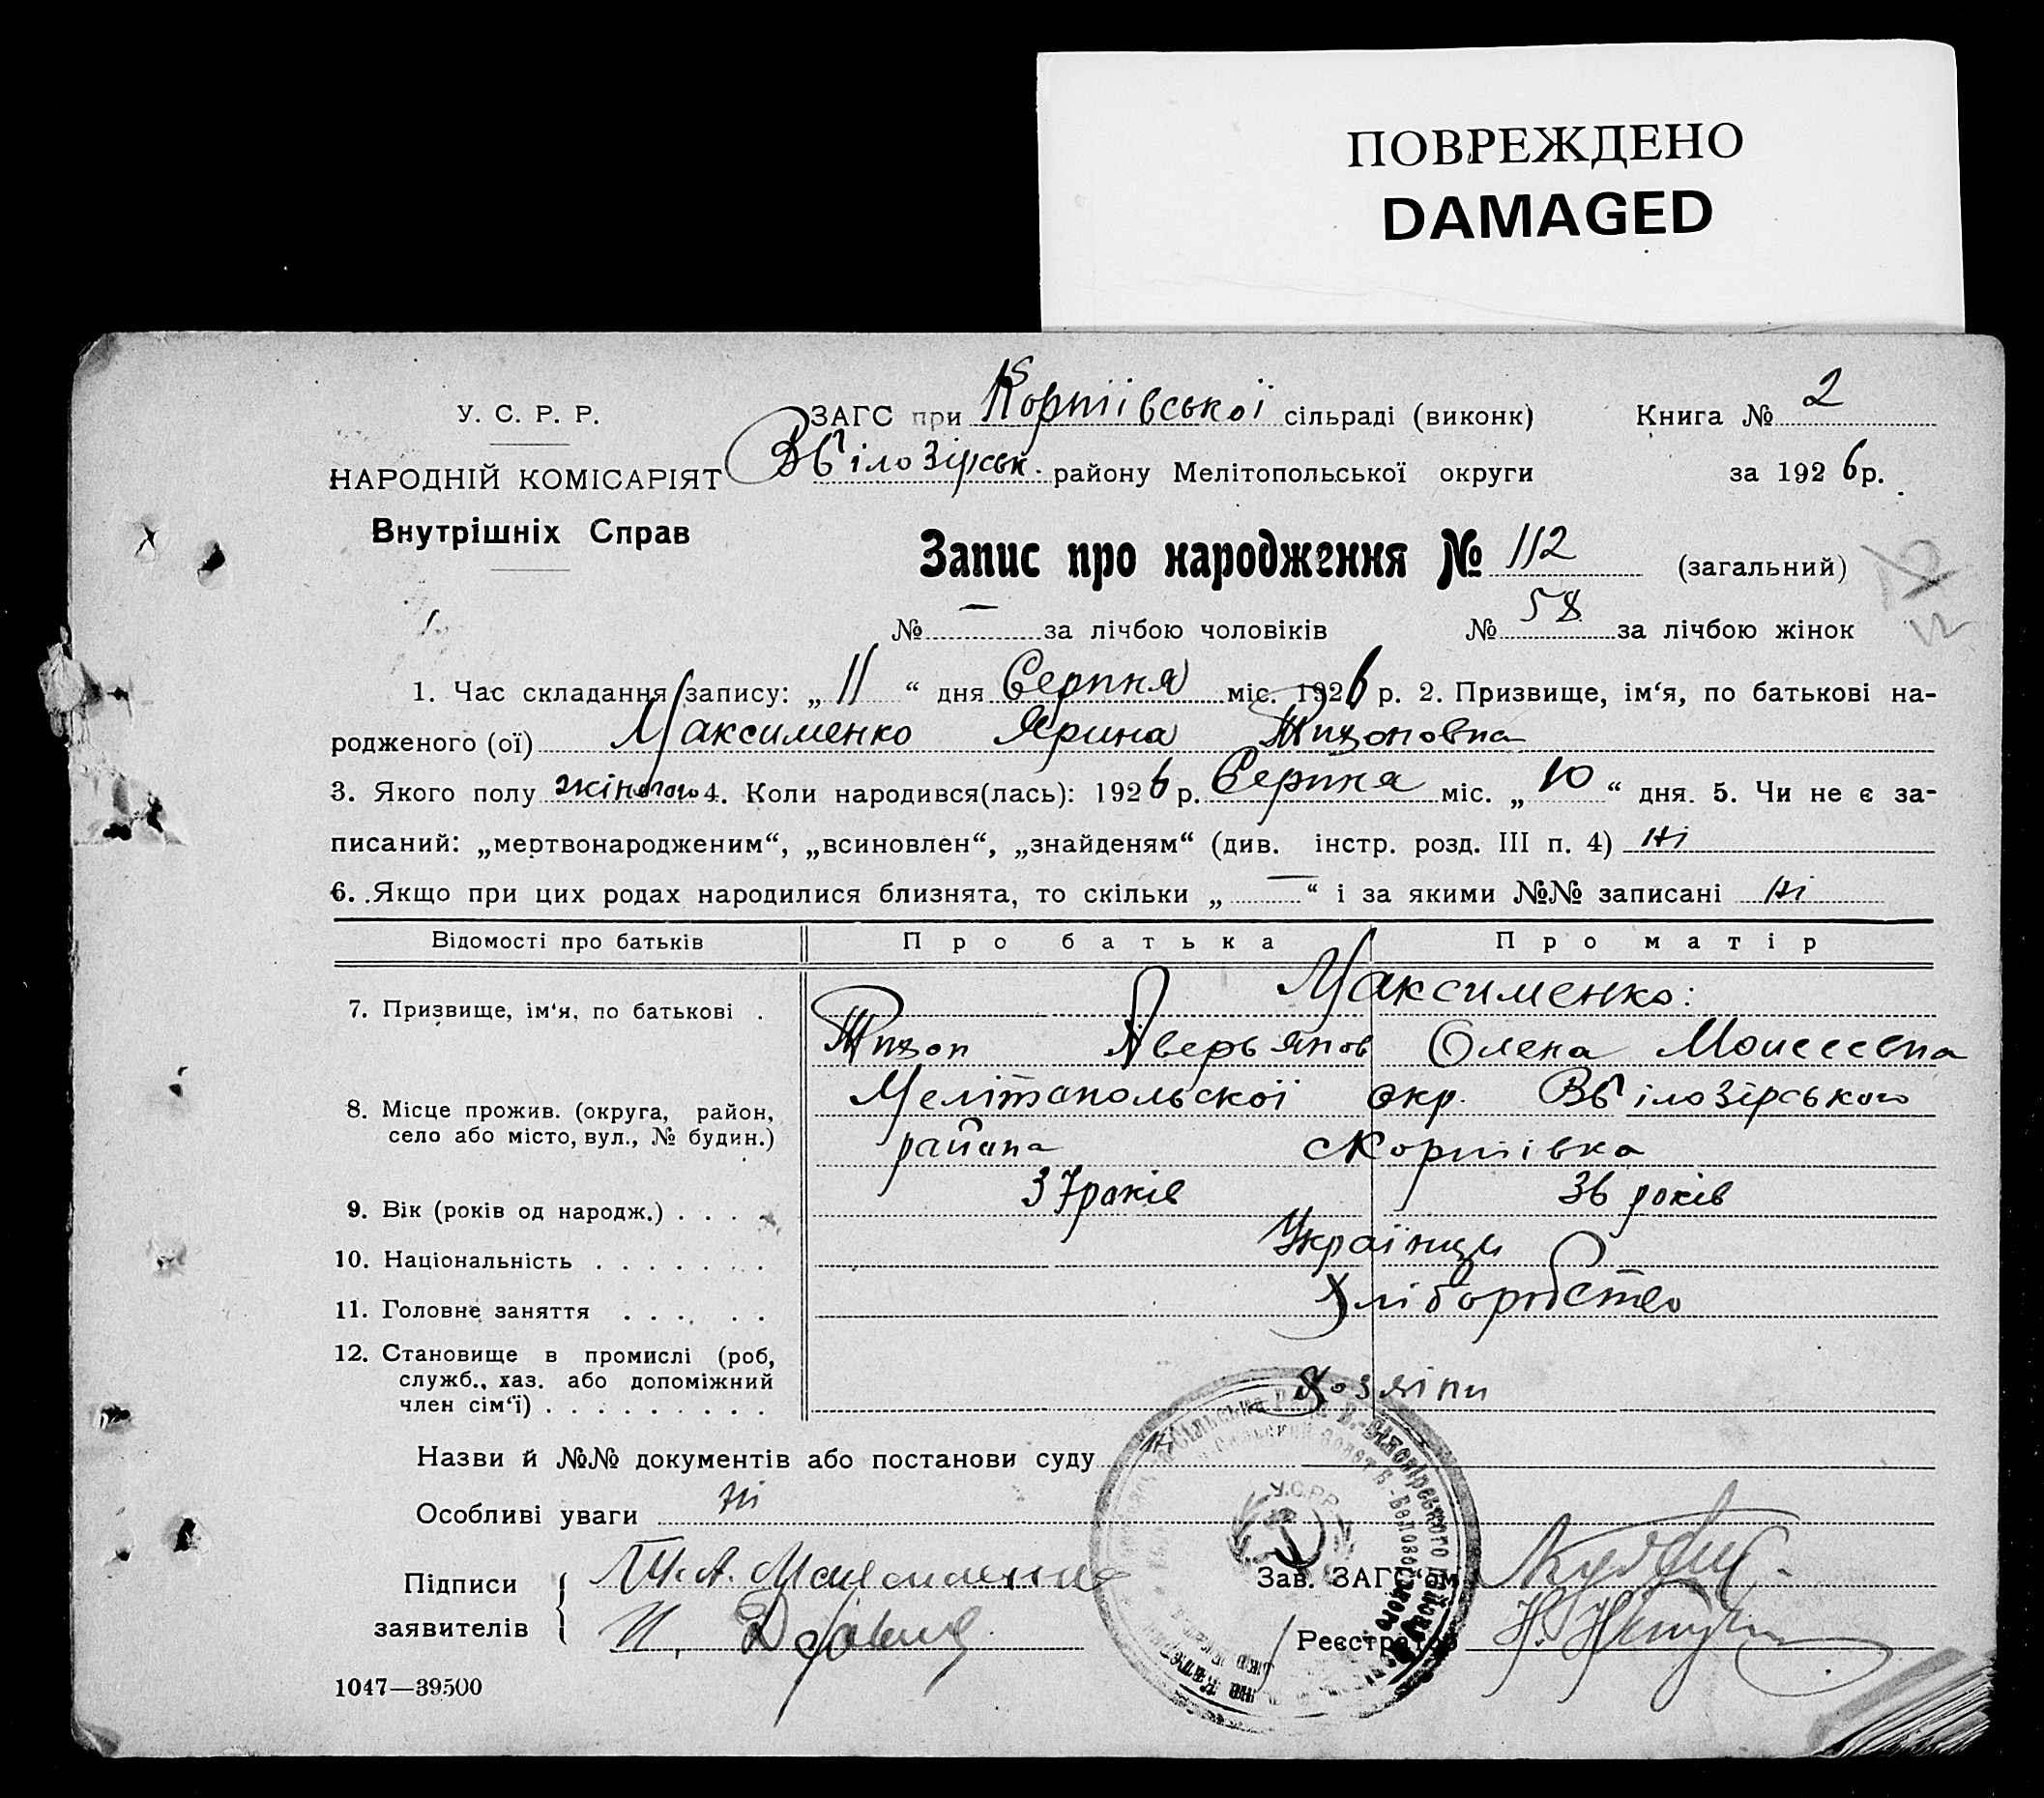 ПОВРЕЖДЕНО
DAMAGED
У. С. Р. Р.
НАРОДНІЙ КОМІСАРІЯТ
Внутрішніх Справ
ЗАГС при Кортіївської сільраді (виконк) Книга № 2
В Білозірськ. району Мелітопольської округи за 1926 р.
Запис про народження № 112 (загальний)
№ — за лічбою чоловіків № 58 за лічбою жінок
1. Час складання запису: „ 11 “ дня Серпня міс. 1926 р. 2. Призвище, ім‘я, по батькові на-
родженого (ої) Максименко Ярина Тихоновна
3. Якого полу жіночого 4. Коли народився(лась): 1926 р. Серпня міс. „ 10 “ дня. 5. Чи не є за-
писаний: „мертвонародженим“, „всиновлен“, „знайденям“ (див. інстр. розд. III п. 4) ні
6. Якщо при цих родах народилися близнята, то скільки „ — “ і за якими №№ записані ні
Відомості про батьків Про батька Про матір
7. Призвище, ім‘я, по батькові . Максименко:
Тихон Аверьянов Олена Моисеевна
8. Місце прожив. (округа, район, село або місто, вул., № будин.) Мелітопольскої окр. В Білозірського
района Кортіївка
9. Вік (років од народж.) . . . . 37 років 36 років
10. Національність . . . . . . . Українци
11. Головне заняття . . . . . . Хліборобство
12. Становище в промислі (роб,
служб., хаз. або допоміжний
член сім‘ї) . . . . . . . . . Хозяїни
Назви й №№ документів або постанови суду
Особливі уваги ні
Підписи
заявителів
Т. А. Максименко
Зав. ЗАГС‘ом
Реєстратор
У.С.Р.Р.
1047—39500